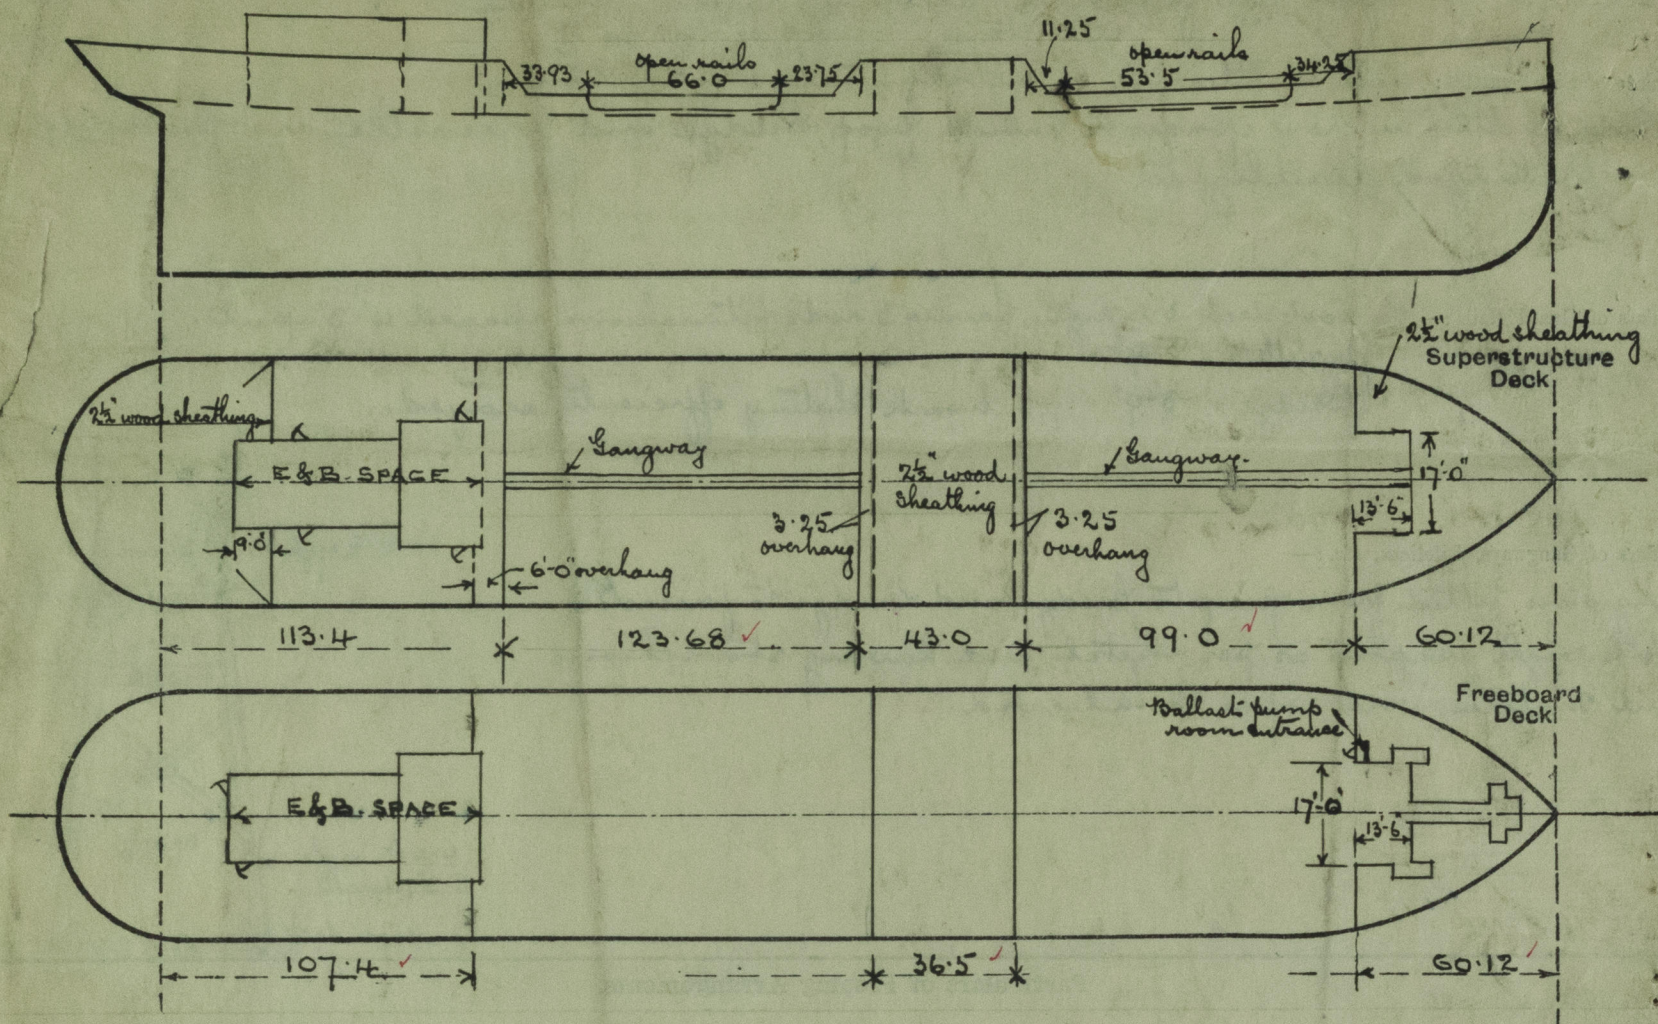 11.25
open rails
open rails
33.93
66.0
23.75
53.5
34.25
2½" wood sheathing
Superstructure
Deck
2½" wood sheathing
Gangway
Gangway.
E & B. SPACE
2½" wood
sheathing
17'-0"
13'-6"
3.25
overhang
3.25
overhang
9'-0"
6'-0" overhang
113.4
123.68
43.0
99.0
60.12
Freeboard
Deck
Ballast pump
room entrance
E & B. SPACE
17'-0"
13'-6"
107.4
36.5
60.12